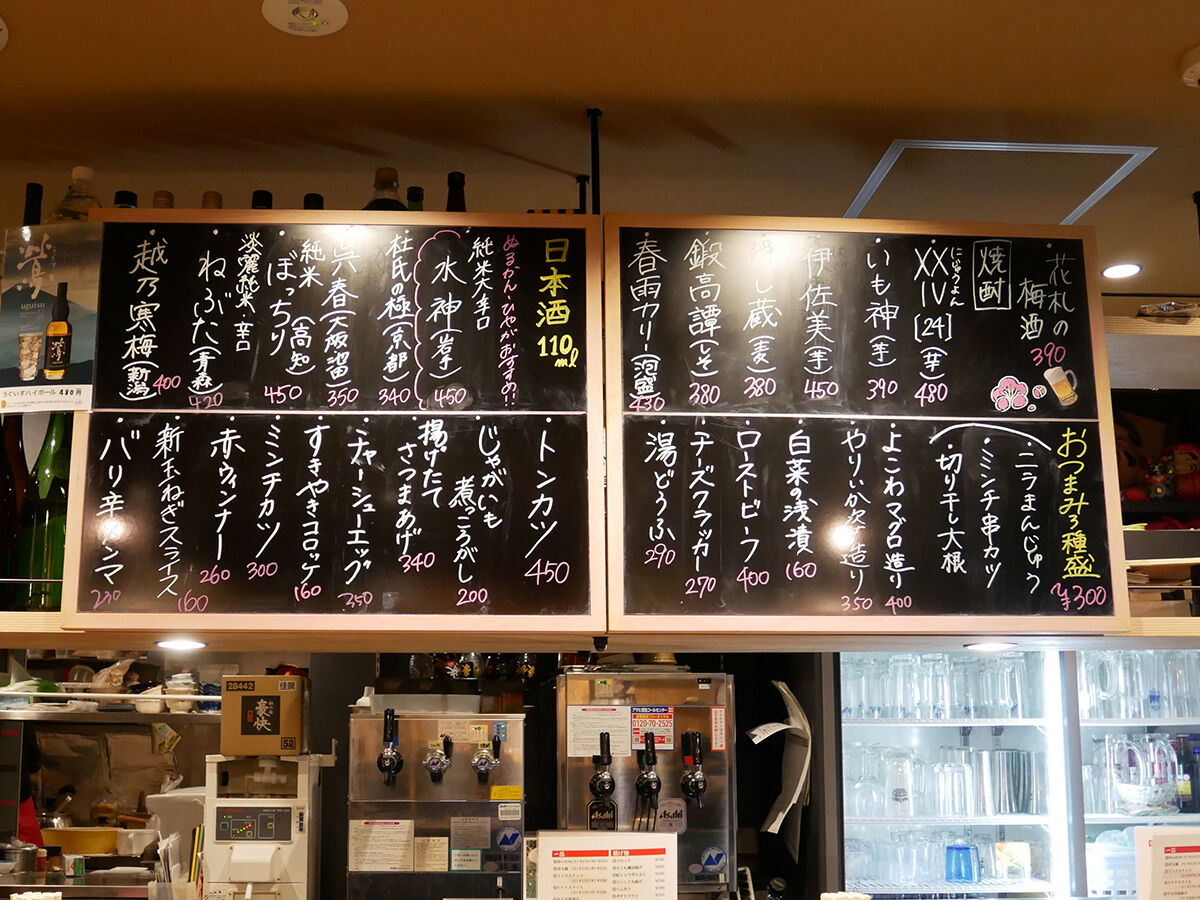 花札の
梅酒
390
焼酎
にじゅうよん
XX
IV
[24](芋)
480
・いも神(芋)
390
・伊佐美(芋)
450
し蔵(麦)
380
・鍛高譚(しそ)
380
・春雨カリー(泡盛)
430
日本酒 110ml
ぬるかん・ひやがおすすめ!!
純米大辛口
・水神(岩手)
450
・杜氏の極(京都)
340
・呉春(大阪池田)
350
純米
・ぼっちり(高知)
450
淡麗純米 辛口
・ねぶた(青森)
420
・越乃寒梅(新潟)
400
おつまみ3種盛
¥300
・ニラまんじゅう
・ミンチ串カツ
・切り干し大根
・よこわマグロ造り
400
・やりいか造り
350
・白菜の浅漬
160
・ローストビーフ
400
・チーズクラッカー
270
・湯どうふ
290
・トンカツ
450
・じゃがいも
煮っころがし
200
・揚げたて
さつまあげ
340
・チャーシューエッグ
350
・すきやきコロッケ
160
・ミンチカツ
300
・赤ウィンナー
260
・新玉ねぎスライス
160
・バリ辛
鶯
uguisu
うぐいすハイボール 480円
28442
豪快
5ℓ
0120-70-2525
Asahi
Asahi
一品
揚げ物